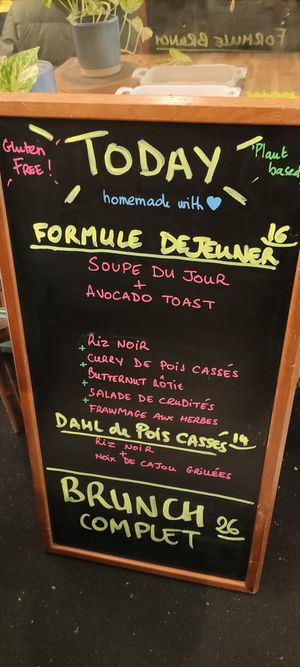 FORMULE BRUNCH
Gluten FREE!
TODAY
Plant based
homemade with
FORMULE DEJEUNER 16
SOUPE DU JOUR
+
AVOCADO TOAST
RIZ NOIR
+ CURRY DE POIS CASSÉS
+ BUTTERNUT RÔTIE
+ SALADE DE CRUDITÉS
+ FRAWMAGE AUX HERBES
DAHL de POIS CASSÉS 14
RIZ NOIR
+
NOIX DE CAJOU GRILLÉES
BRUNCH
COMPLET 26